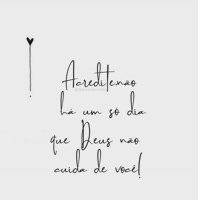 Acredite:não
há um só dia
que Deus não
cuida de você!